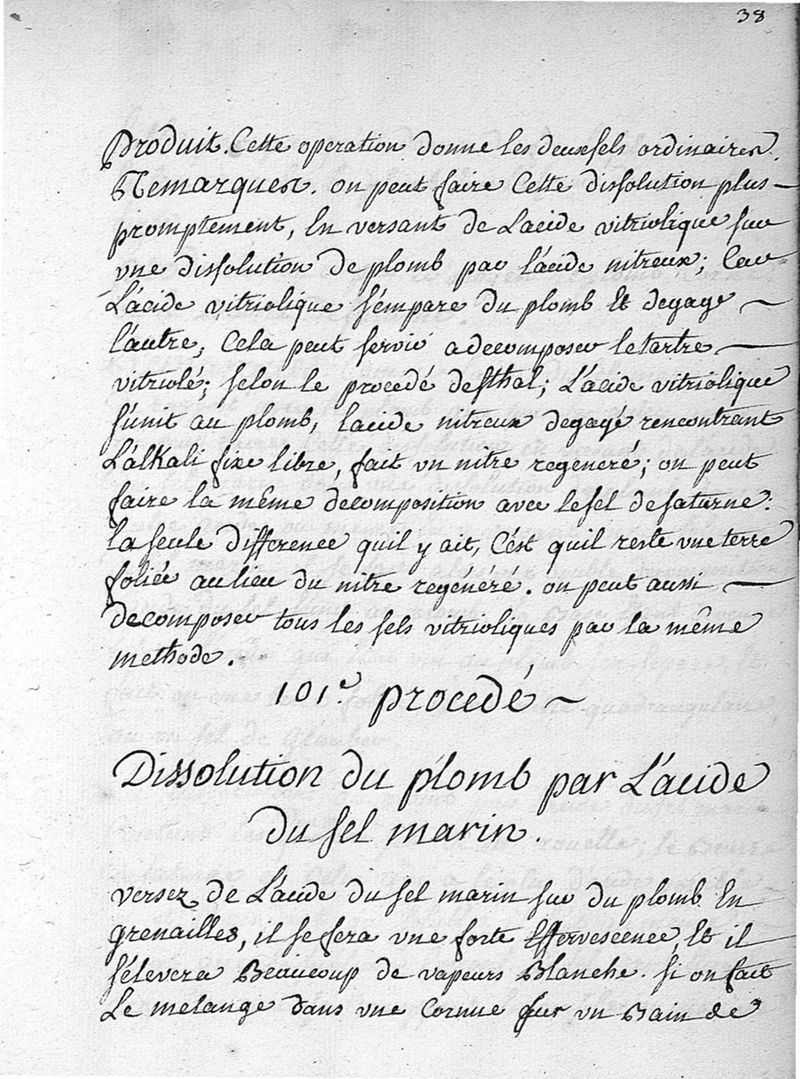 38
Produit. Cette operation donne les deux sels ordinaires.
Remarques. on peut faire Cette dissolution plus
promptement, En versant de L'acide vitriolique sur
vne dissolution de plomb par l'acide nitreux; Car
L'acide vitriolique s'empare du plomb Et degage
l'autre, Cela peut servir a decomposer le tartre
vitriolé; selon le procedé de sthal; L'acide vitriolique
s'unit au plomb, lacide nitreux degagé rencontrant
L'alkali fixe libre, fait vn nitre regeneré; on peut
faire la même decomposition avec le sel de saturne:
la seule difference quil y ait, C'est quil reste vne terre
foliée au lieu du nitre regénéré. on peut aussi
decomposer tous les sels vitrioliques par la même
methode.
101e procedé
Dissolution du plomb par L'acide
du sel marin.
versez de L'acide du sel marin sur du plomb En
grenailles, il se fera vne forte Effervescence, Et il
s'élevera Beaucoup de vapeurs Blanche. si on fait
Le melange dans vne Cornue sur vn Bain de